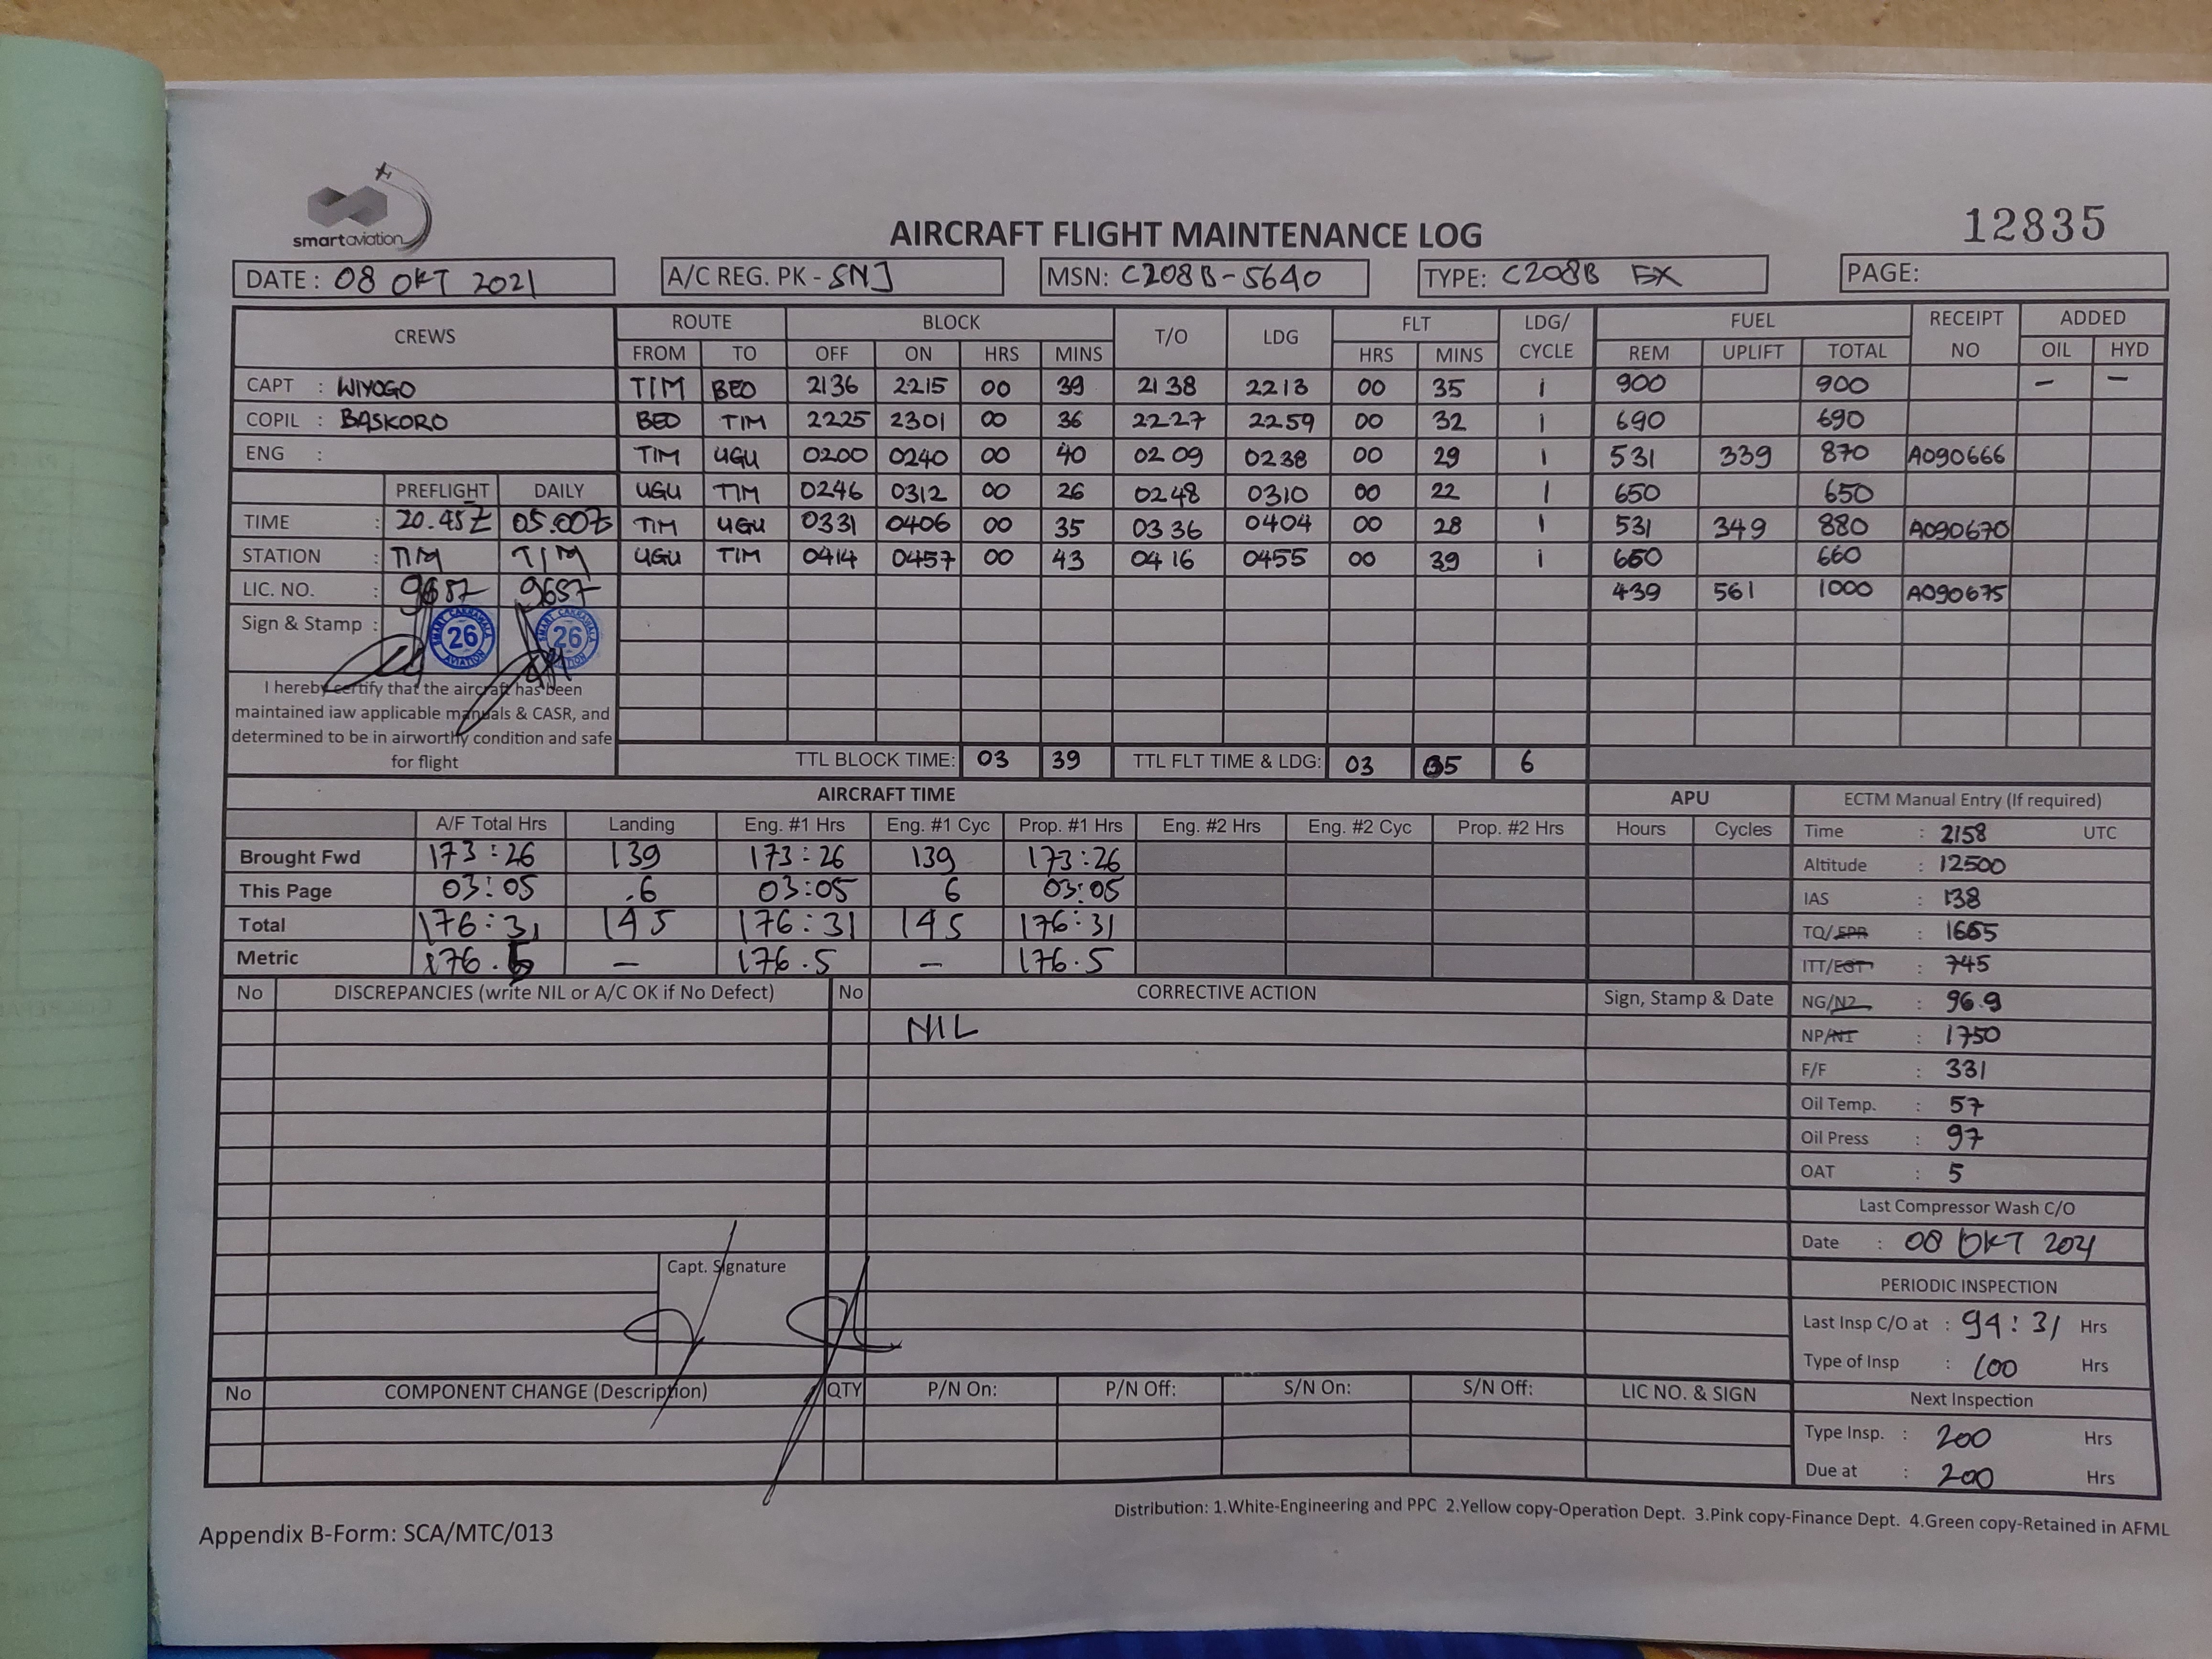 smartaviation
AIRCRAFT FLIGHT MAINTENANCE LOG
12835
DATE : 08 OKT 2021 A/C REG. PK - SNJ MSN: C208B-5640 TYPE: C208B EX PAGE:
CREWS ROUTE BLOCK T/O LDG FLT LDG/ CYCLE FUEL RECEIPT NO ADDED
FROM TO OFF ON HRS MINS HRS MINS REM UPLIFT TOTAL OIL HYD
CAPT : WIYOGO TIM BEO 2136 2215 00 39 2138 2213 00 35 1 900 900 – –
COPIL : BASKORO BEO TIM 2225 2301 00 36 2227 2259 00 32 1 690 690
ENG : TIM UGU 0200 0240 00 40 0209 0238 00 29 1 531 339 870 A090666
PREFLIGHT DAILY UGU TIM 0246 0312 00 26 0248 0310 00 22 1 650 650
TIME : 20.45Z 05.00Z TIM UGU 0331 0406 00 35 0336 0404 00 28 1 531 349 880 A090670
STATION : TIM TIM UGU TIM 0414 0457 00 43 0416 0455 00 39 1 660 660
LIC. NO. : 9687 9687 439 561 1000 A090675
Sign & Stamp :
SMART CAKRAWALA AVIATION 26
SMART CAKRAWALA AVIATION 26
I hereby certify that the aircraft has been
maintained iaw applicable manuals & CASR, and
determined to be in airworthy condition and safe
for flight
TTL BLOCK TIME: 03 39 TTL FLT TIME & LDG: 03 05 6
AIRCRAFT TIME APU ECTM Manual Entry (If required)
A/F Total Hrs Landing Eng. #1 Hrs Eng. #1 Cyc Prop. #1 Hrs Eng. #2 Hrs Eng. #2 Cyc Prop. #2 Hrs Hours Cycles Time : 2158 UTC
Brought Fwd 173:26 139 173:26 139 173:26 Altitude : 12500
This Page 03:05 .6 03:05 6 03:05 IAS : 138
Total 176:31 145 176:31 145 176:31 TQ/EPR : 1665
Metric 176.5 – 176.5 – 176.5 ITT/EGT : 745
No DISCREPANCIES (write NIL or A/C OK if No Defect) No CORRECTIVE ACTION Sign, Stamp & Date NG/N2 : 96.9
NIL NP/N1 : 1750
F/F : 331
Oil Temp. : 57
Oil Press : 97
OAT : 5
Last Compressor Wash C/O
Date : 08 OKT 2021
Capt. Signature
PERIODIC INSPECTION
Last Insp C/O at : 94:31 Hrs
Type of Insp : 100 Hrs
No COMPONENT CHANGE (Description) QTY P/N On: P/N Off: S/N On: S/N Off: LIC NO. & SIGN Next Inspection
Type Insp. : 200 Hrs
Due at : 200 Hrs
Distribution: 1.White-Engineering and PPC 2.Yellow copy-Operation Dept. 3.Pink copy-Finance Dept. 4.Green copy-Retained in AFML
Appendix B-Form: SCA/MTC/013